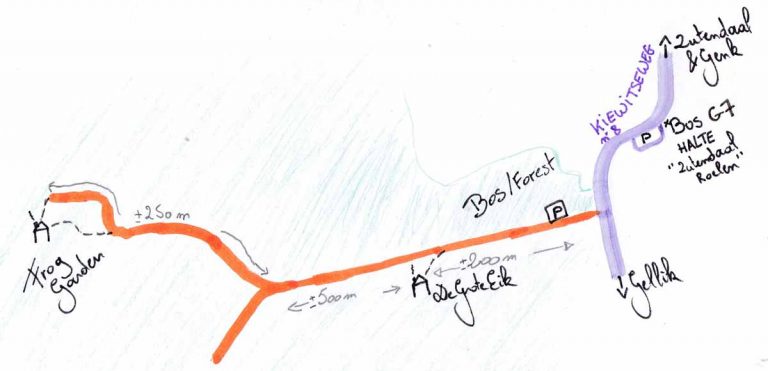 Zutendaal
& Genk
KIEWITSEWEG
n° 8
P
*Bos G-7
HALTE
"Zutendaal
Roelen"
Bos/Forest
P
±250m
Frog
Garden
±200m
De Grote Eik
±500m
Gellik